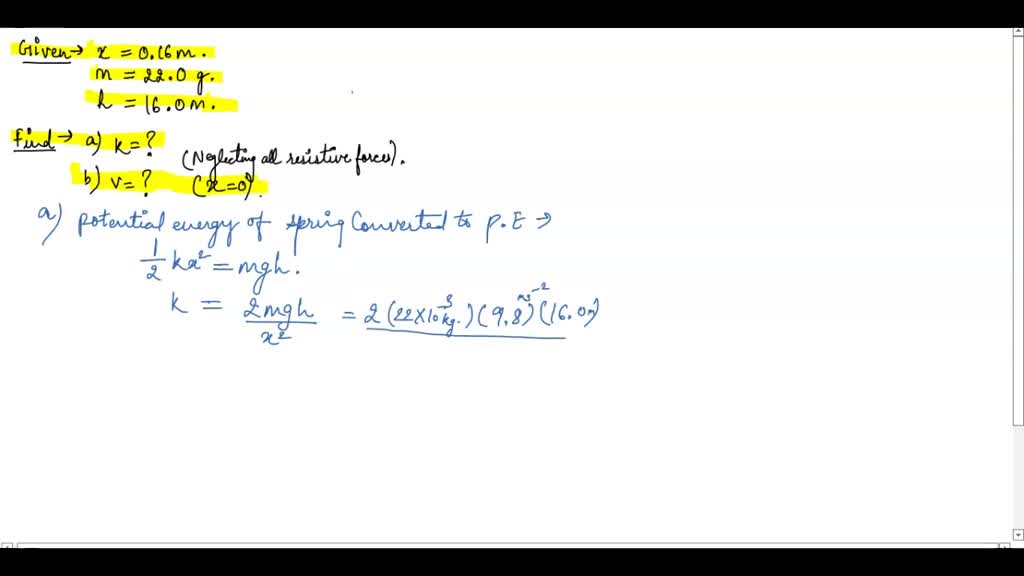 Given → x = 0.16 m.
m = 22.0 g.
h = 16.0 m.
Find → a) k = ?
(Neglecting all resistive forces).
b) v = ? (x=0).
a) potential energy of spring Converted to P.E →
1/2 kx² = mgh.
k = 2mgh/x² = 2 (22×10⁻³ kg.) (9.8 ms⁻²) (16.0 m)